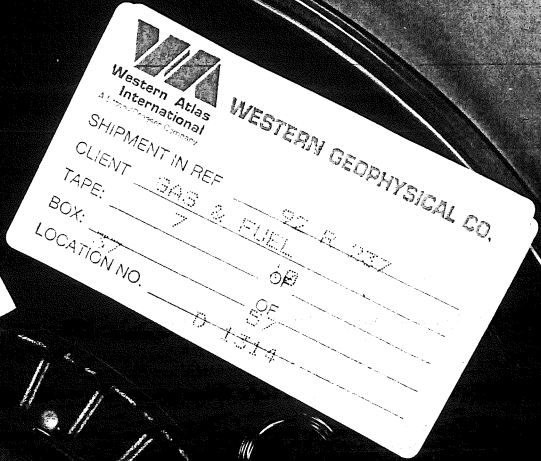 Western Atlas
International
A Litton/Dresser Company
WESTERN GEOPHYSICAL CO.
SHIPMENT IN REF 92 R 337
CLIENT GAS & FUEL
TAPE: 7 OF 18
BOX: 37 OF 57
LOCATION NO. D 1314